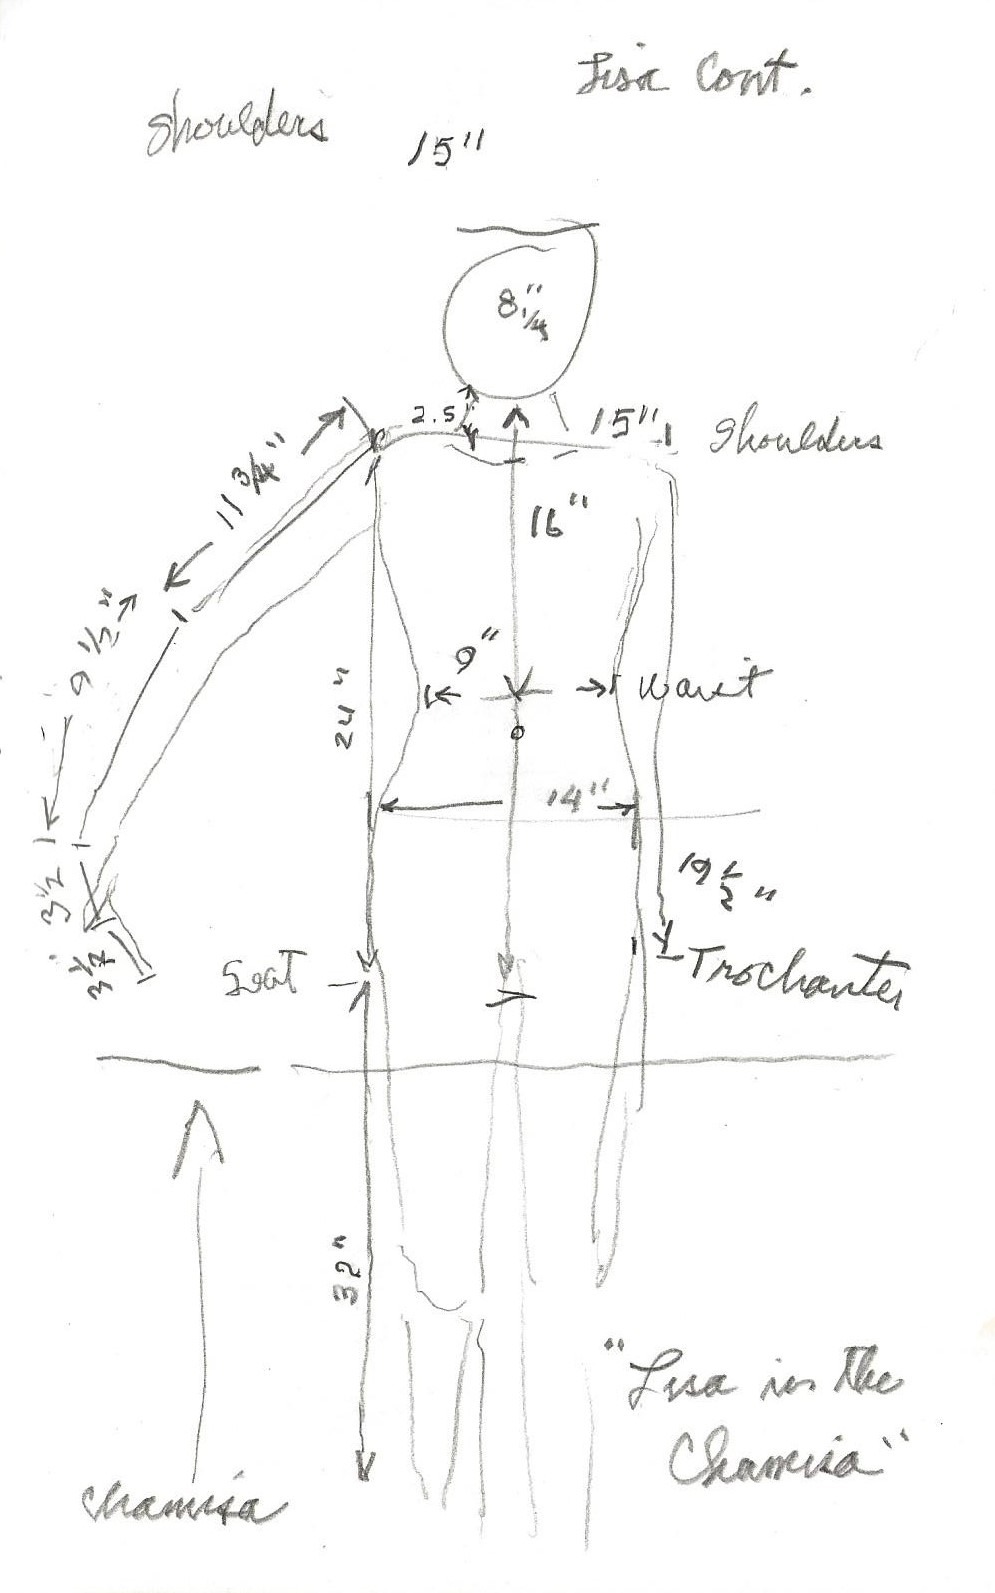 Lisa Cont.
Shoulders
15"
8 1/4"
2.5"
15"
Shoulders
11 3/4"
16"
9 1/2"
9"
waist
24"
14"
19 1/2"
3 1/2
3 1/2
Seat
Trochanter
32"
"Lisa in the
Chamisa"
chamisa